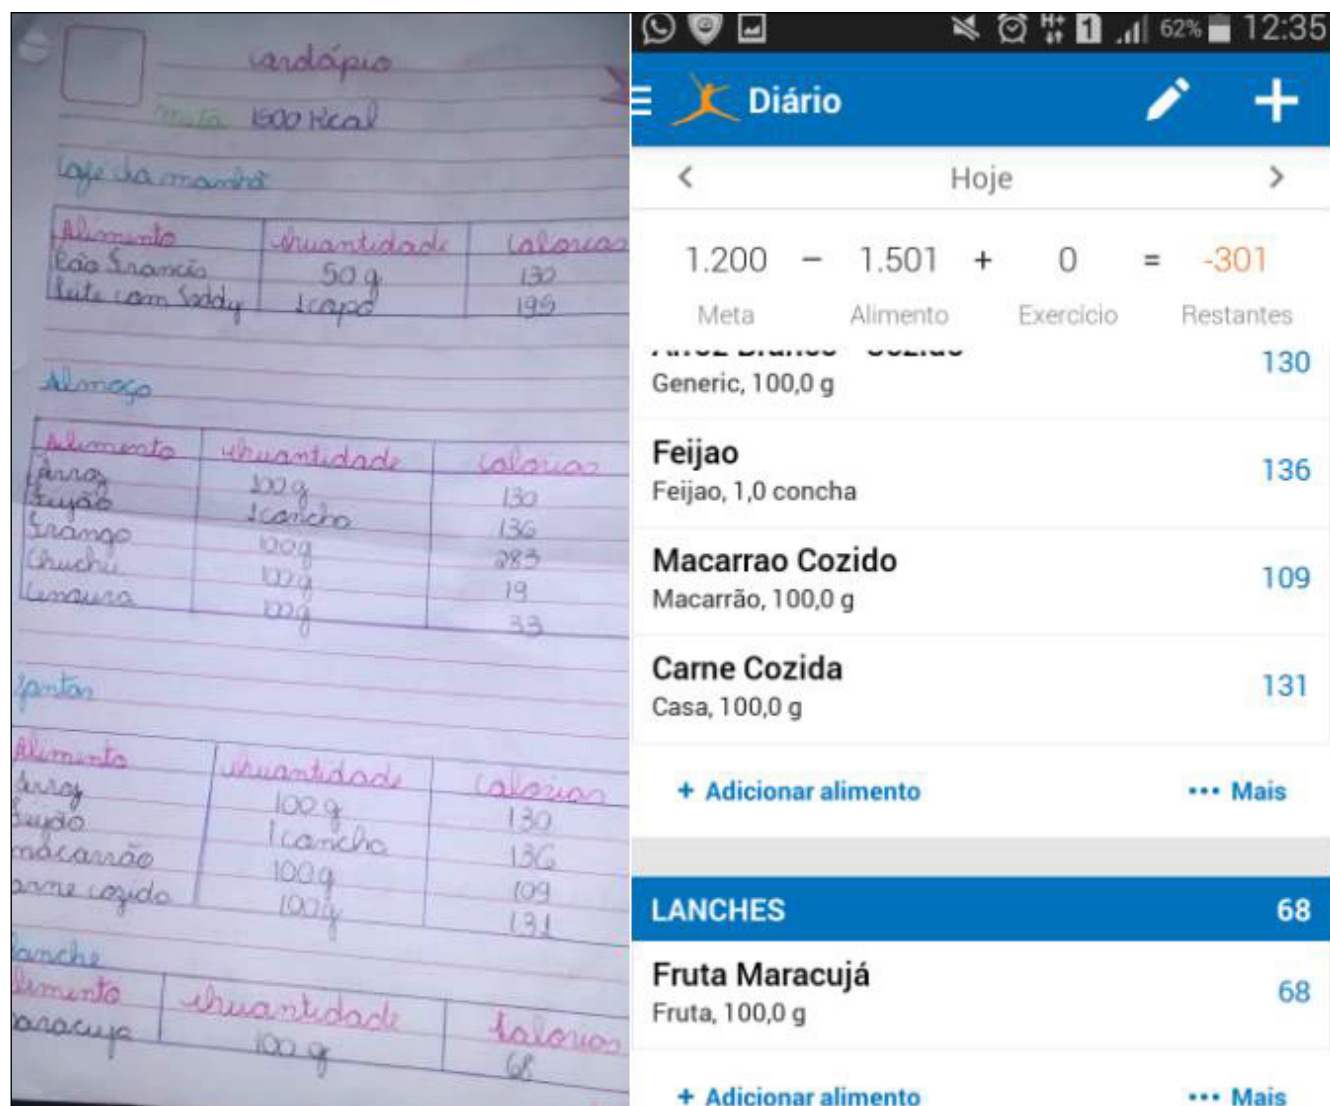 Cardápio
meta 1500 Kcal
Café da manhã
Alimento Quantidade Calorias
Pão Francês 50 g 130
Leite com Toddy 1 copo 195
Almoço
Alimento Quantidade Calorias
Arroz 100 g 130
Feijão 1 concha 136
Frango 100g 283
Chuchu 100g 19
Cenoura 100g 33
Jantar
Alimento Quantidade Calorias
Arroz 100 g 130
Feijão 1 concha 136
macarrão 100g 109
carne cozida 100g 131
Lanche
Alimento Quantidade Calorias
maracuja 100 g 68
H+ 1 62% 12:35
Diário
Hoje
1.200 − 1.501 + 0 = -301
Meta Alimento Exercício Restantes
Arroz Branco - Cozido 130
Generic, 100,0 g
Feijao 136
Feijao, 1,0 concha
Macarrao Cozido 109
Macarrão, 100,0 g
Carne Cozida 131
Casa, 100,0 g
+ Adicionar alimento ••• Mais
LANCHES 68
Fruta Maracujá 68
Fruta, 100,0 g
+ Adicionar alimento ••• Mais